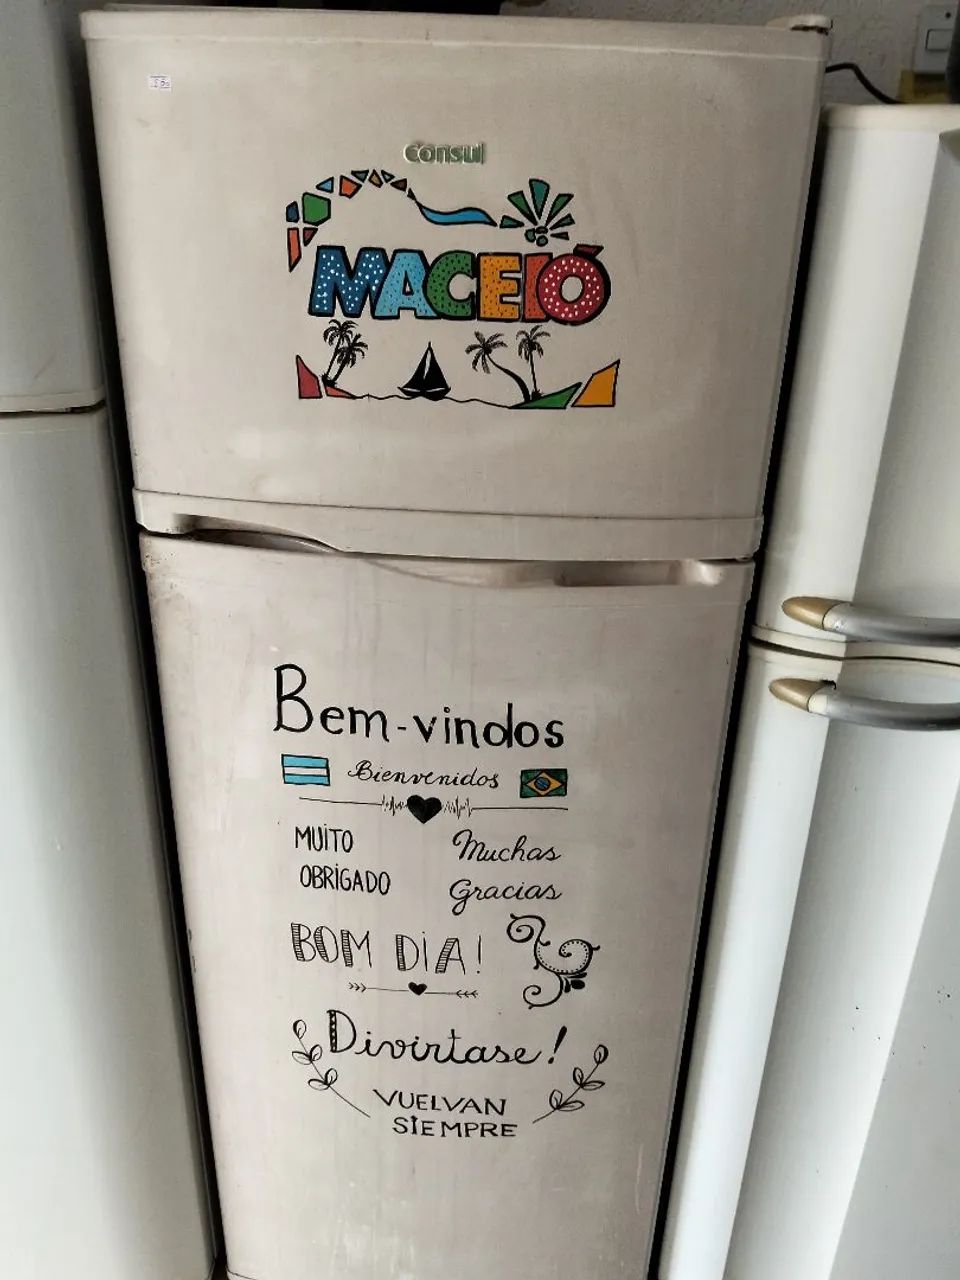 consul
MACEIÓ
Bem-vindos
Bienvenidos
MUITO Muchas
OBRIGADO Gracias
BOM DIA!
Divirtase!
VUELVAN
SIEMPRE